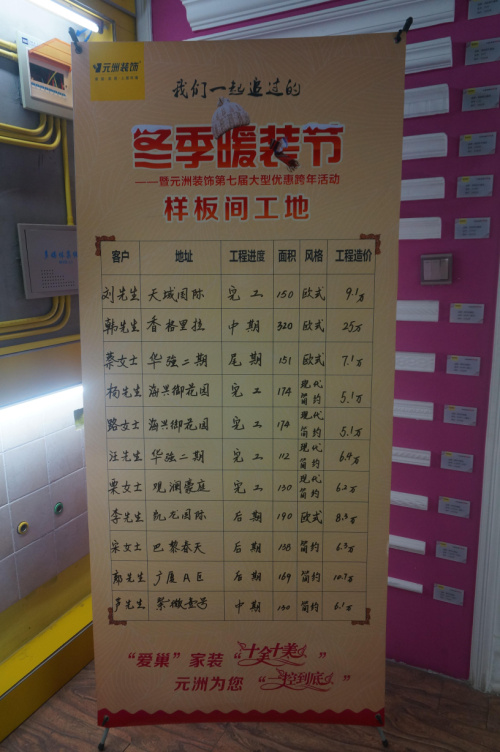 元洲装饰
我们一起追过的
冬季暖装节
——暨元洲装饰第七届大型优惠跨年活动
样板间工地
客户 地址 工程进度 面积 风格 工程造价
刘先生 天域国际 完工 150 欧式 9.1万
韩先生 香格里拉 中期 320 欧式 25万
蔡女士 华强二期 尾期 151 欧式 7.1万
杨先生 海兴御花园 完工 174 现代简约 5.1万
路女士 海兴御花园 完工 174 现代简约 5.1万
汪先生 华强二期 完工 112 现代简约 6.4万
栗女士 观澜豪庭 完工 130 现代简约 6.2万
李先生 凯龙国际 后期 190 欧式 8.3万
宋女士 巴黎春天 后期 138 简约 6.3万
郭先生 广厦A区 后期 169 简约 10.7万
芦先生 紫薇壹号 中期 130 简约 6.1万
“爱巢”家装“十全十美”
元洲为您“一控到底”